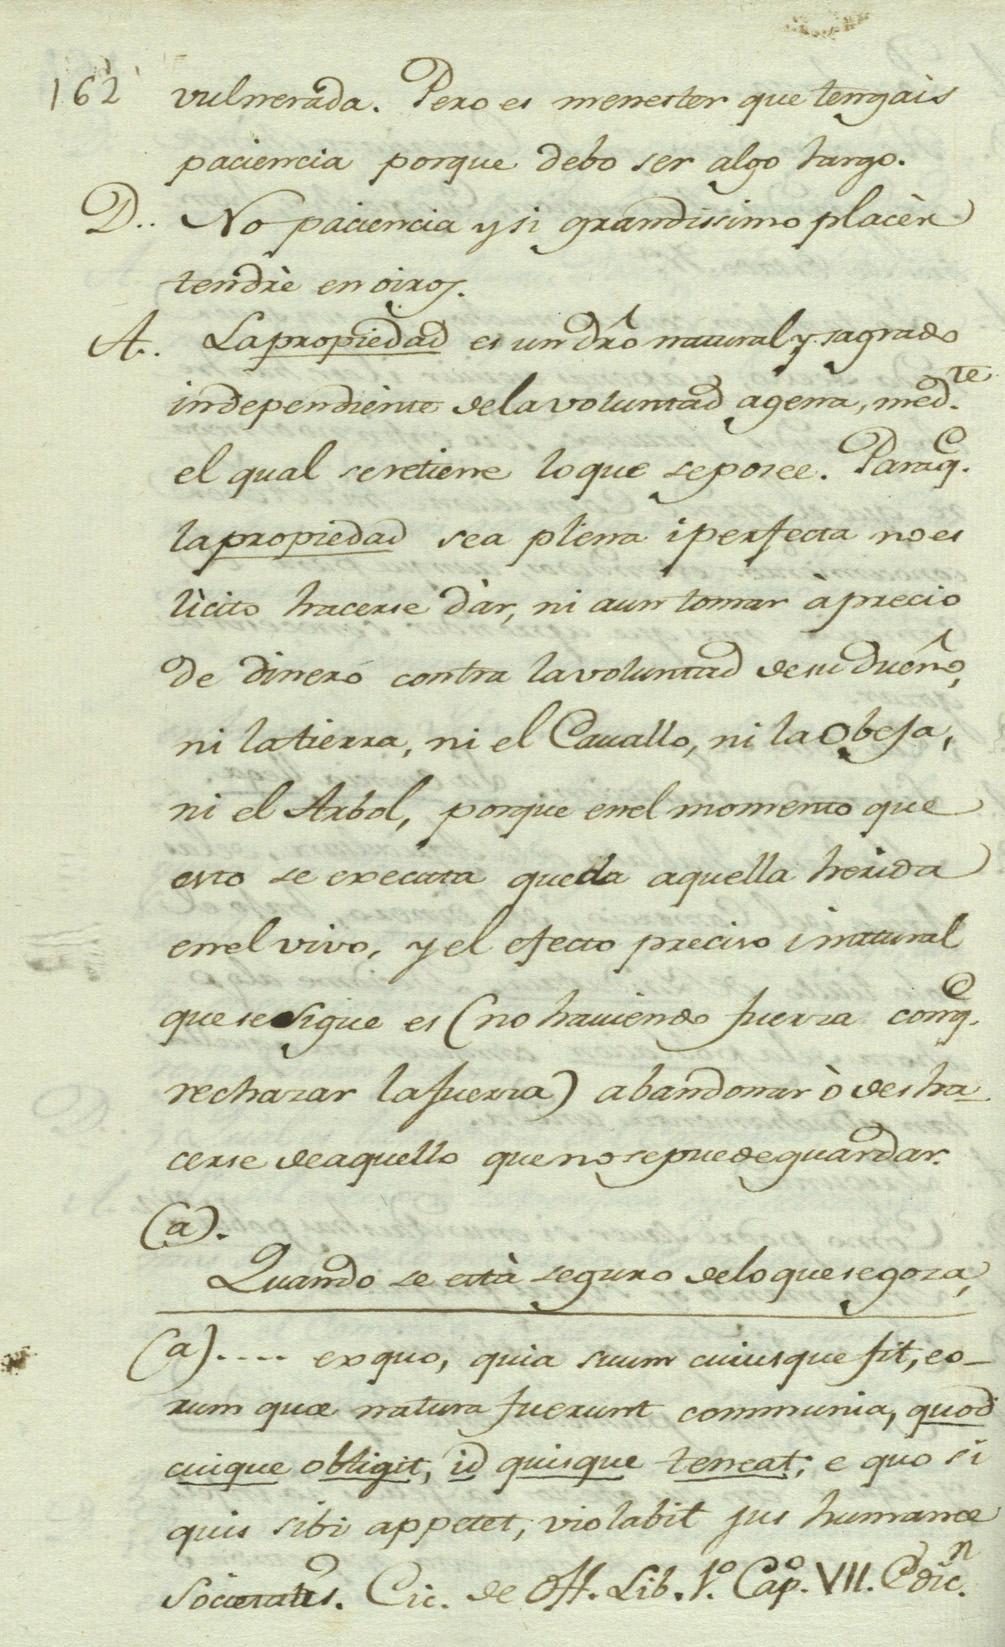 162 vulnerada. Pero es menester que tengais
paciencia porque debo ser algo largo.
D.. No paciencia y si grandissimo placèr
tendrè en oiros.
A.. La propiedad es un drȏ natural y sagrado
independiente de la voluntad agena, med.te
el qual se retiene lo que se posee. Para q.e
la propiedad sea plena i perfecta no es
lìcito hacerse dàr, ni aun tomar à precio
de dinero contra la voluntad de su dueño,
ni la tierra, ni el Cavallo, ni la Obeja,
ni el Arbol, porque en el momento que
esto se executa queda aquella herida
en el vivo, y el efecto preciso i natural
que se sigue es (no haviendo fuerza con q.e
rechazar la fuerza) abandonar ò desha-
cerse de aquello que no se puede guardar.
(a).
Quando se està seguro de lo que se goza,
(a).... ex quo, quia suum cuiusque fit, eo-
rum quæ natura fuerunt communia, quod
cuique obtigit, id quisque teneat; e quo si
quis sibi appetet, violabit jus humanæ
Societatis. Cic. de Off. Lib. 1.o Cap.o VII. Edic.n